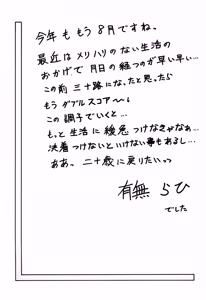 今年ももう8月ですね。
最近はメリハリのない生活の
おかげで月日の経つのが早い早い…
この前三十路になったと思ったら
もうダブルスコア〜〜。
この調子でいくと…
もっと生活に緩急つけなきゃなぁ…
決着つけないといけない事もあるし…
ああ。二十歳に戻りたいっっ
有無らひ
でした